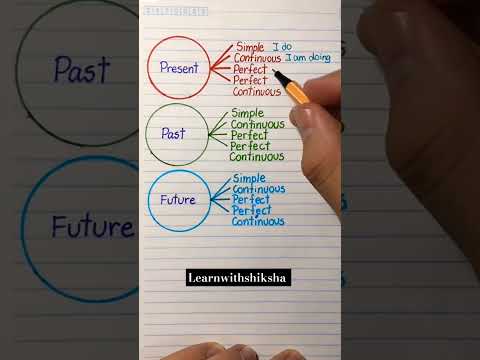 Present
Simple I do
Continuous I am doing
Perfect
Perfect
Continuous
Past
Simple
Continuous
Perfect
Perfect
Continuous
Future
Simple
Continuous
Perfect
Perfect
Continuous
Learnwithshiksha
Past
Future